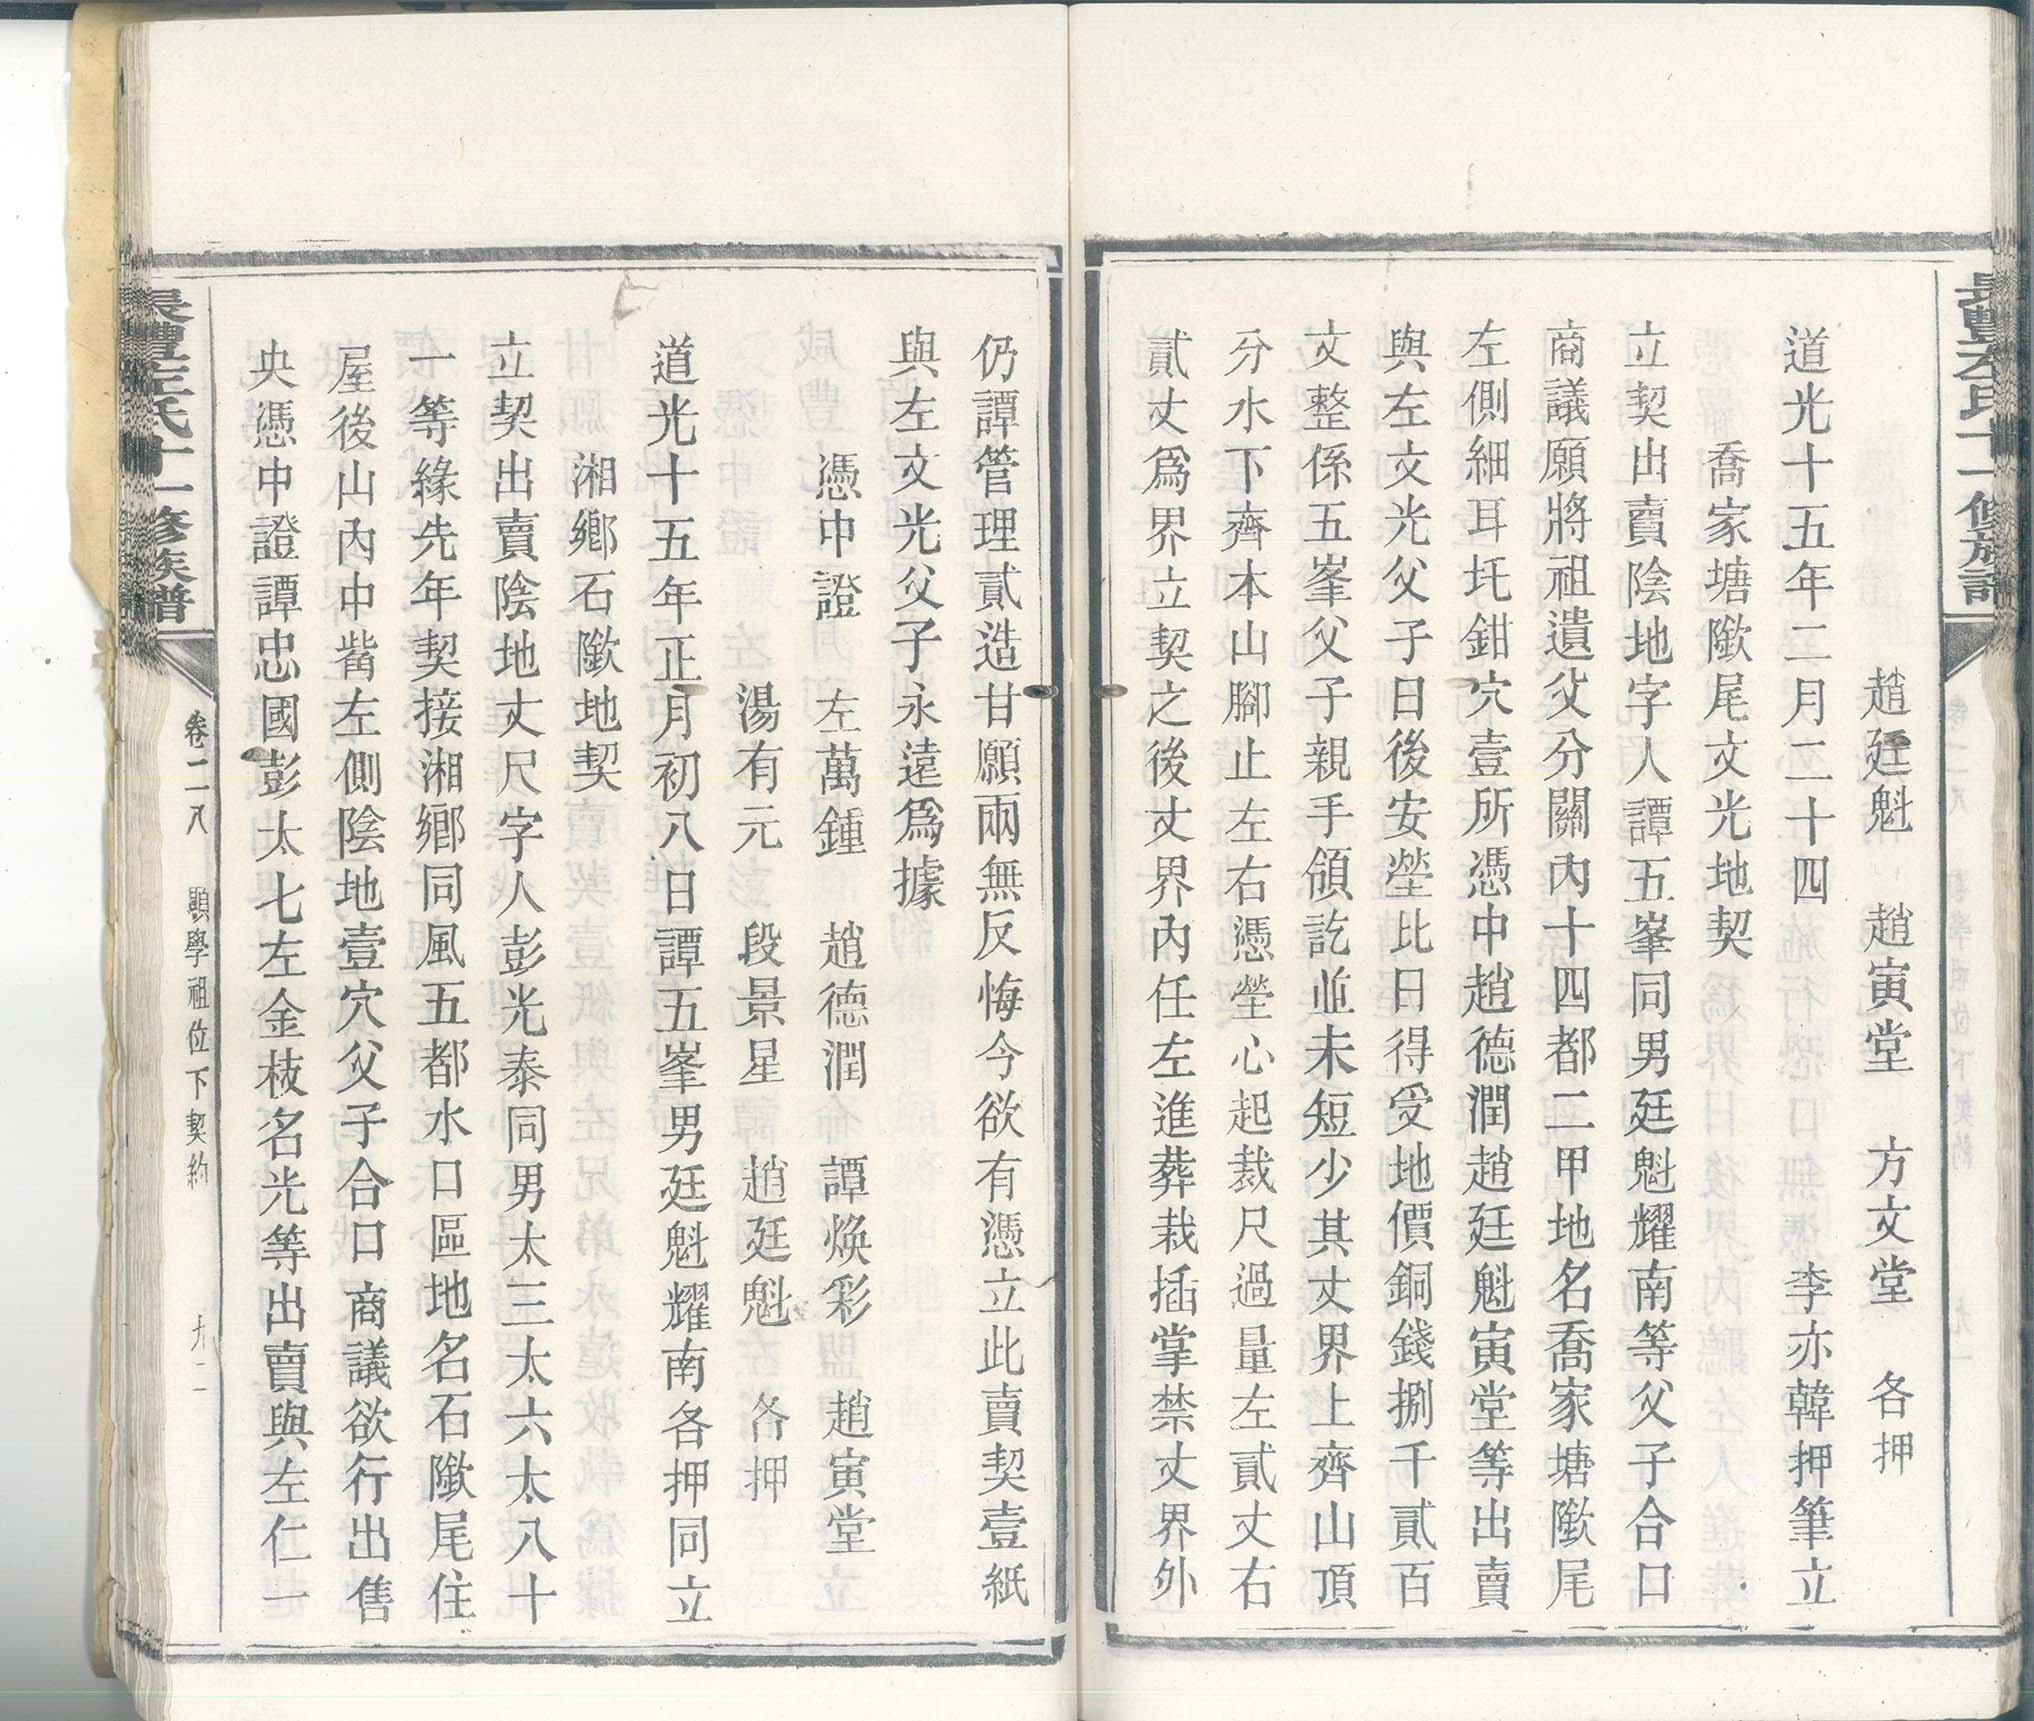 長豐左氏十一修族譜
趙廷魁　趙寅堂　方文堂　各押
道光十五年二月二十四　李亦韓押筆立
喬家塘歘尾文光地契
立契出賣陰地字人譚五峯同男廷魁耀南等父子合口
商議願將祖遺父分關內十四都二甲地名喬家塘歘尾
左側細耳圫鉗穴壹所憑中趙德潤趙廷魁寅堂等出賣
與左文光父子日後安塋比日得受地價銅錢捌千貳百
文整係五峯父子親手領訖並未短少其丈界上齊山頂
分水下齊本山腳止左右憑塋心起裁尺過量左貳丈右
貳丈爲界立契之後丈界內任左進葬栽插掌禁丈界外
仍譚管理貳造甘願兩無反悔今欲有憑立此賣契壹紙
與左文光父子永遠爲據
憑中證　左萬鍾　趙德潤　譚煥彩　趙寅堂
湯有元　段景星　趙廷魁　各押
道光十五年正月初八日譚五峯男廷魁耀南各押同立
湘鄉石歘地契
立契出賣陰地丈尺字人彭光泰同男太三太六太八十
一等緣先年契接湘鄉同風五都水口區地名石歘尾住
屋後山內中㟗左側陰地壹穴父子合口商議欲行出售
央憑中證譚忠國彭太七左金枝名光等出賣與左仁一
長豐左氏十一修族譜
卷二八　顯學祖位下契約　九二